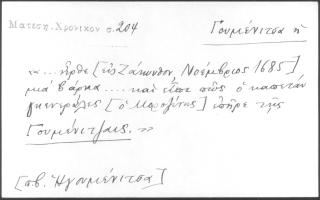 Ματέση. Χρονικὸν σ. 204
Γουμένιτσα ἡ
«... ἦρθε [εἰς Ζάκυνθον, Νοέμβριος 1685]
μιὰ βάρκα .... καὶ εἶπε πὼς ὁ καπετὰν
γκενεράλες [ὁ Μοροζίνης] ἐπῆρε τὴς
Γουμένιτζαις. »
[πβ. Ἡγουμένιτσα]